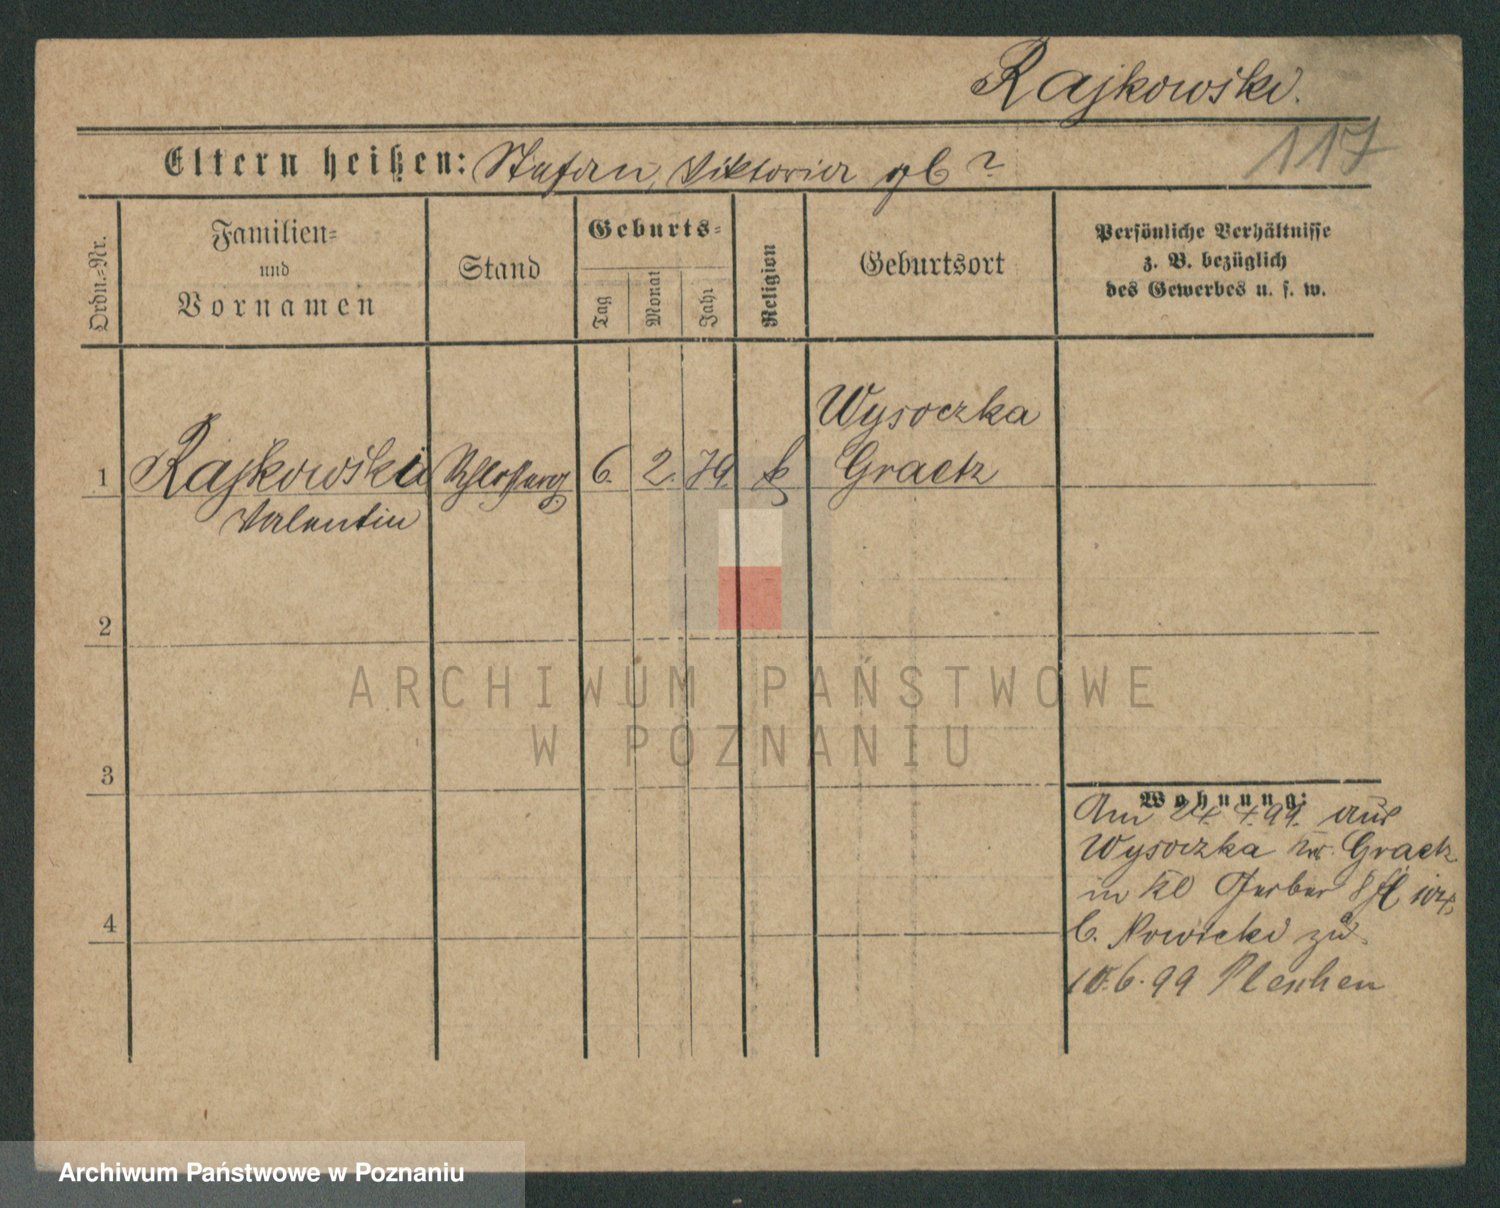 Rajkowski.
117
Eltern heißen: Stefan, Viktoria gb ?
Ordn.=Nr.
Familien=
und
Vornamen
Stand
Geburts=
Tag
Monat
Jahr
Religion
Geburtsort
Persönliche Verhältnisse
z. B. bezüglich
des Gewerbes u. s. w.
Wysoczka
1 Rajkowski Schlosserg. 6. 2. 79. k Graetz
Valentin
2
3
4
Wohnung:
Am 24. 4. 99. aus
Wysoczka Kr. Graetz
in Kl Gerber 8
b. Nowicki zu.
10.6.99 Pleschen
ARCHIWUM PAŃSTWOWE
W POZNANIU
Archiwum Państwowe w Poznaniu